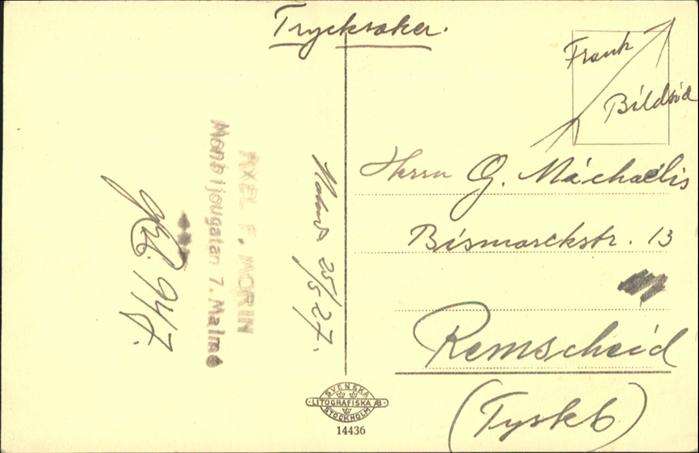 Trycksaker.
Frank
Bildsid
Herrn G. Michaelis
Bismarckstr. 13
Remscheid
(Tyskl)
AXEL F. MORIN
Monbijougatan 7. Malmö
25/5 27.
947
SVENSKA
LITOGRAFISKA AB
STOCKHOLM
14436